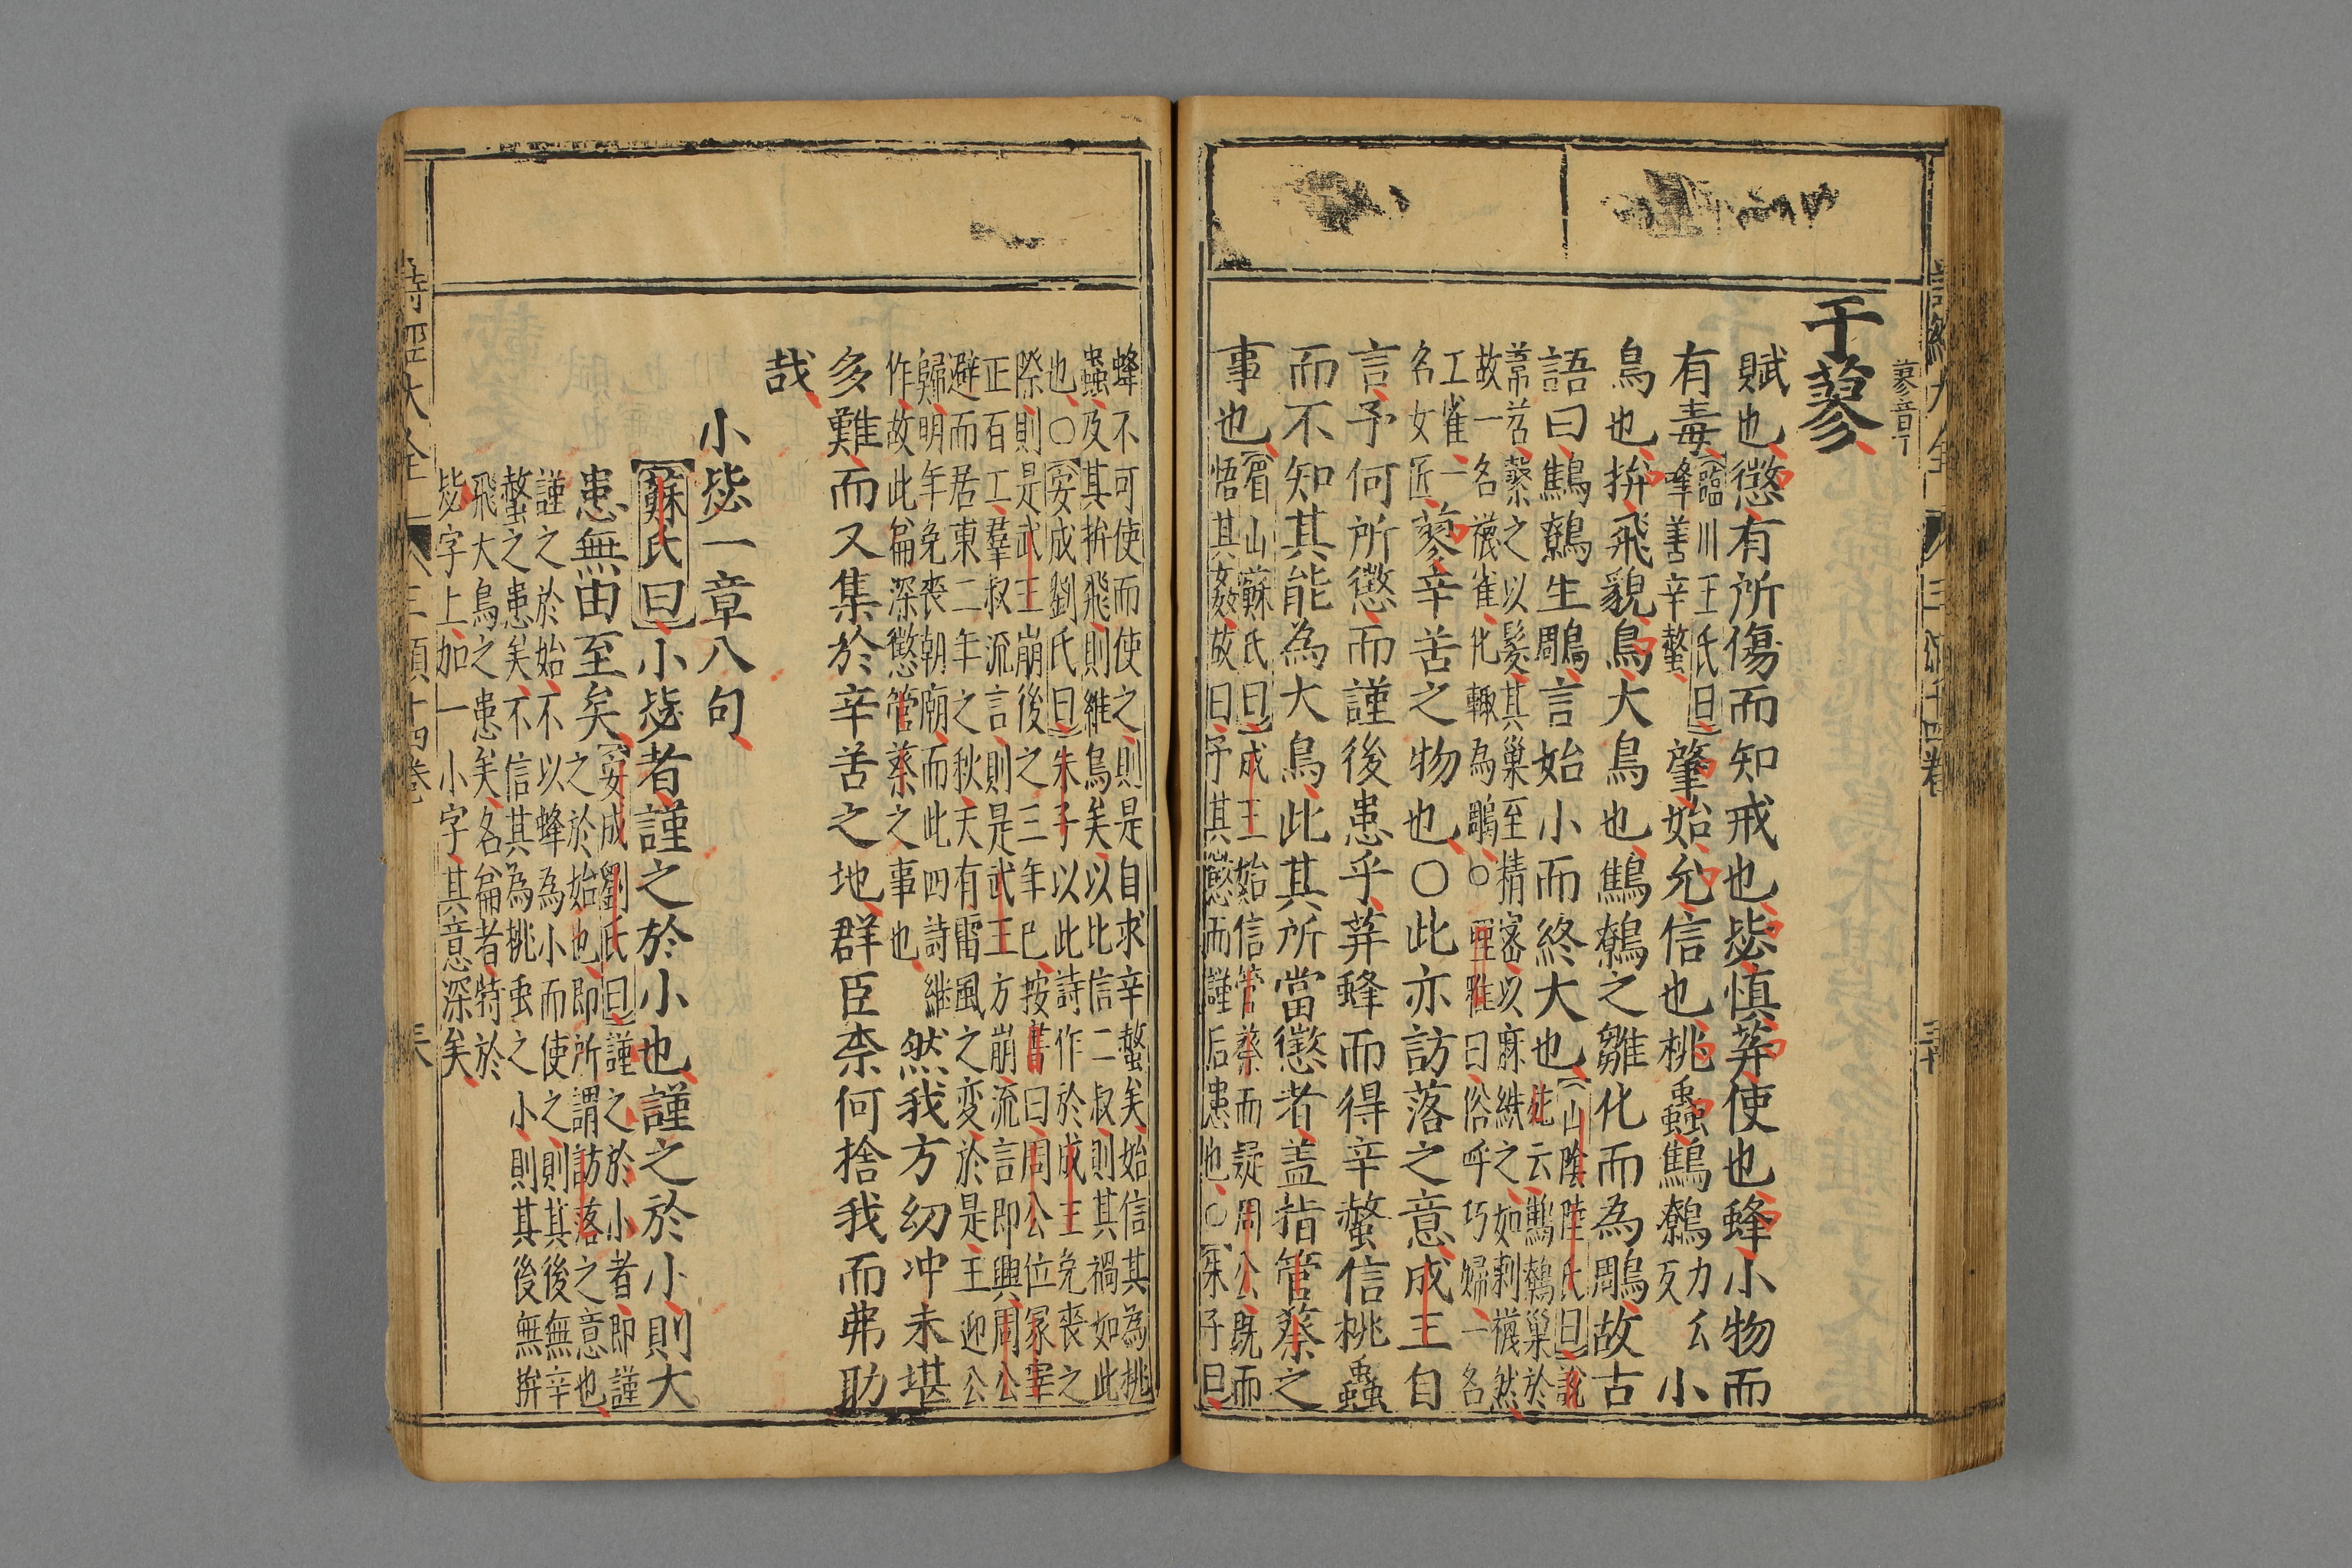 于蓼
蓼音了
賦也懲有所傷而知戒也毖慎荓使也蜂小物而
有毒
臨川王氏曰
蜂善辛螫
肇始允信也桃蟲鷦鷯
力幺
反
小
鳥也拚飛貌鳥大鳥也鷦鷯之雛化而為鵰故古
語曰鷦鷯生鵰言始小而終大也
山陰陸氏曰說
苑云鷦鷯巢於
葦苕蘩之以髮其巢至精密以麻紩之如刺襪然
故一名襪雀化輒為鵰○埤雅曰俗呼巧婦一名
工雀一
名女匠
蓼辛苦之物也○此亦訪落之意成王自
言予何所懲而謹後患乎荓蜂而得辛螫信桃蟲
而不知其能為大鳥此其所當懲者蓋指管蔡之
事也
眉山蘇氏曰成王始信管蔡而疑周公既而
悟其姦故曰予其懲而謹后患也○朱子曰
蜂不可使而使之則是自求辛螫矣始信其為桃
蟲及其拚飛則維鳥矣以比信二叔則其禍如此
也○安成劉氏曰朱子以此詩作於成王免喪之
際則是武王崩後之三年巳按書曰周公位冢宰
正百工羣叔流言則是武王方崩流言即興周公
避而居東二年之秋天有雷風之変於是王迎公
歸明年免喪朝廟而此四詩継
作故此篇深懲管蔡之事也
然我方幼冲未堪
多難而又集於辛苦之地群臣柰何捨我而弗助
哉
小毖一章八句
蘇氏曰小毖者謹之於小也謹之於小則大
患無由至矣
安成劉氏曰謹之於小者即謹
之於始也即所謂訪落之意也
謹之於始不以蜂為小而使之則其後無辛
螫之患矣不信其為桃虫之小則其後無拚
飛大鳥之患矣名篇者特於
毖字上加一小字其意深矣